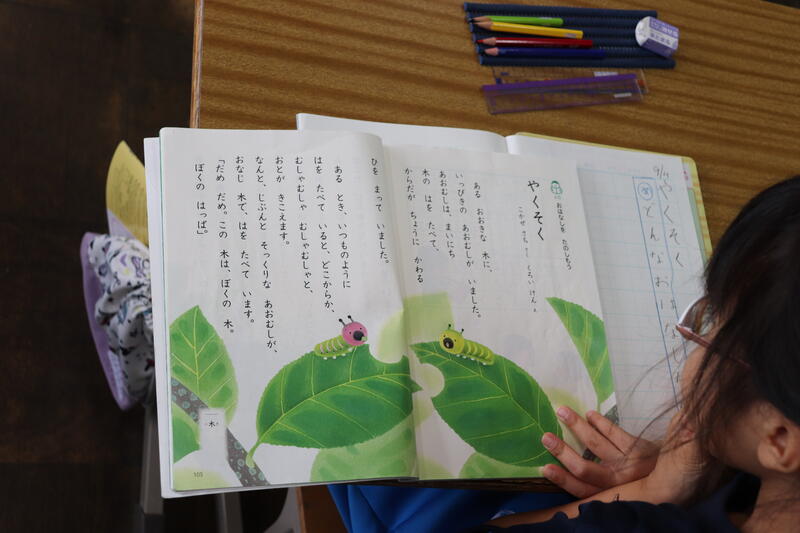 おはなしを たのしもう
やくそく
こかぜ さち さく
くろい けん え
ある おおきな 木に、
いっぴきの あおむしが いました。
あおむしは、まいにち
木の はを たべて、
からだが ちょうに かわる
ひを まって いました。
ある とき、いつものように
はを たべて いると、どこからか、
むしゃむしゃ むしゃむしゃと、
おとが きこえます。
なんと、じぶんと そっくりな あおむしが、
おなじ 木で、はを たべて います。
「だめ だめ。この 木は、ぼくの 木。
ぼくの はっぱ」。
木
105
やくそく
どんなお